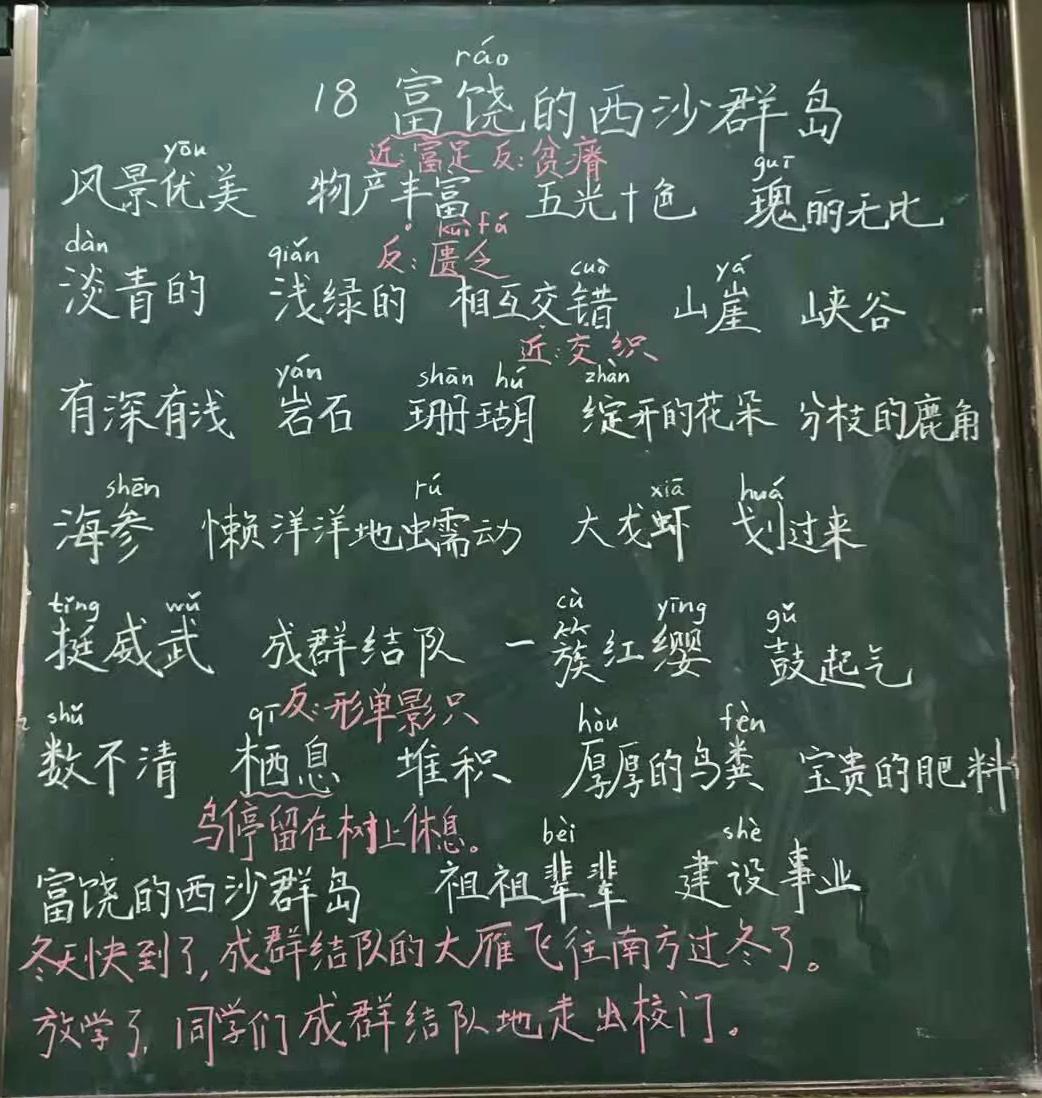 ráo
18 富饶的西沙群岛
近:富足 反:贫瘠
yōu guī
风景优美 物产丰富 五光十色 瑰丽无比
kuì fá
反:匮乏
dàn qiǎn cuò yá
淡青的 浅绿的 相互交错 山崖 峡谷
近:交织
yán shān hú zhàn
有深有浅 岩石 珊瑚 绽开的花朵 分枝的鹿角
shēn rú xiā huá
海参 懒洋洋地蠕动 大龙虾 划过来
tǐng wǔ cù yīng gǔ
挺威武 成群结队 一簇红缨 鼓起气
反:形单影只
shǔ qī hòu fèn
数不清 栖息 堆积 厚厚的鸟粪 宝贵的肥料
鸟停留在树上休息。
bèi shè
富饶的西沙群岛 祖祖辈辈 建设事业
冬天快到了,成群结队的大雁飞往南方过冬了。
放学了,同学们成群结队地走出校门。